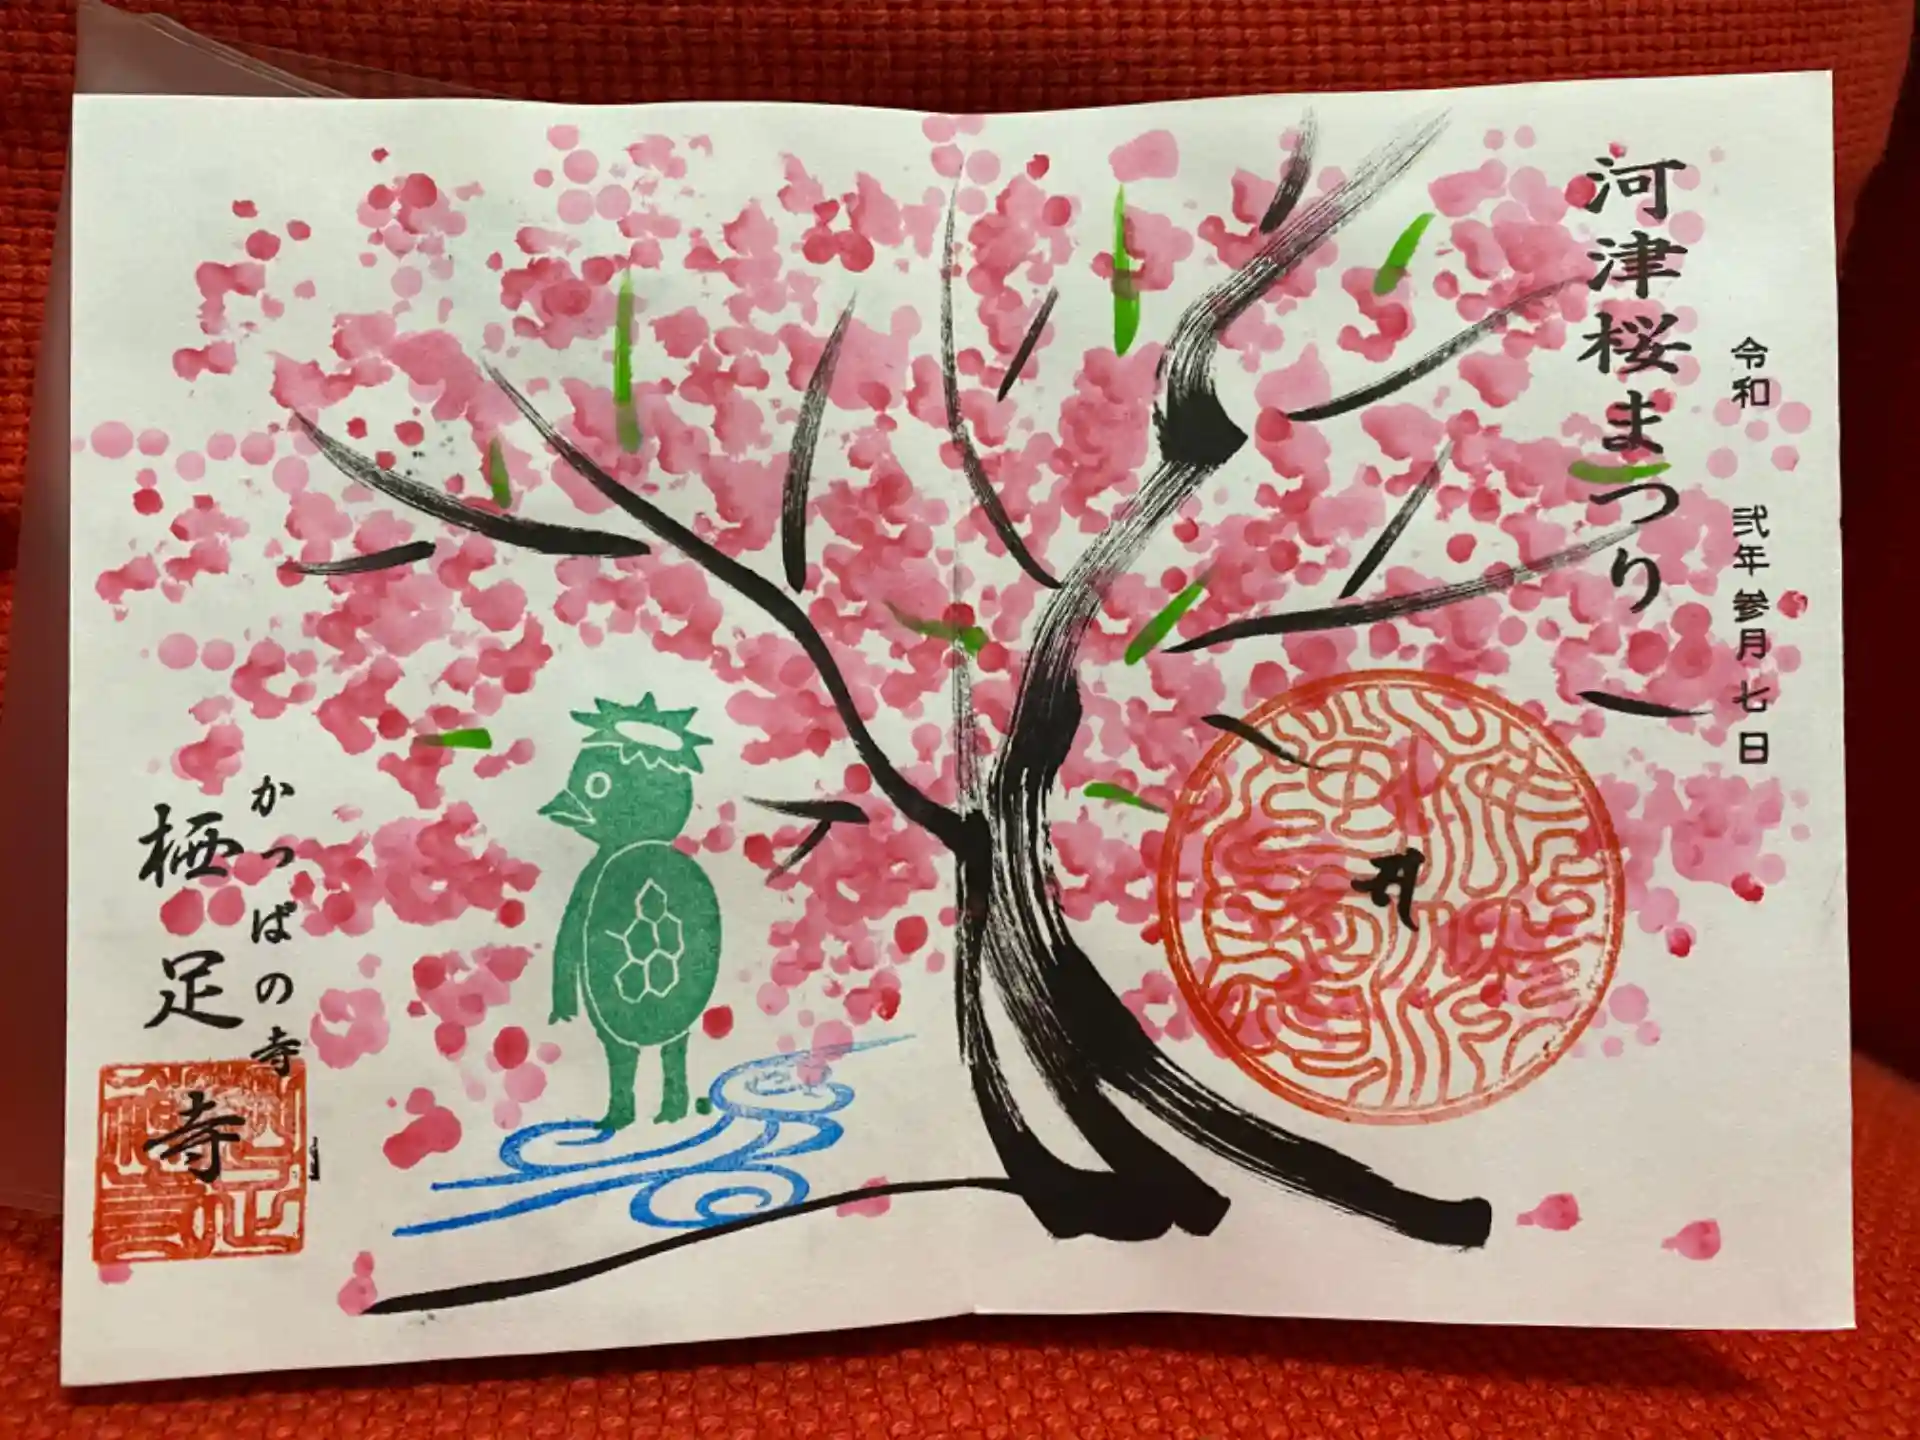 河津桜まつり
令和 弐年参月七日
かっぱの寺
栖足寺